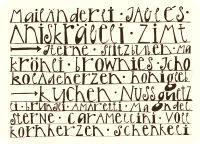 Mailänderli · Jalles ·
Aniskräbeli · Zimt
sterne · Spitzbuben · Ma
kröneli · brownies · Scho
koladeherzen · honigleb
kuchen · Nussgüetz
i · brunsli · Amaretti · Mandel
sterne · caramellini · Voll
kornherzen · schenkeli